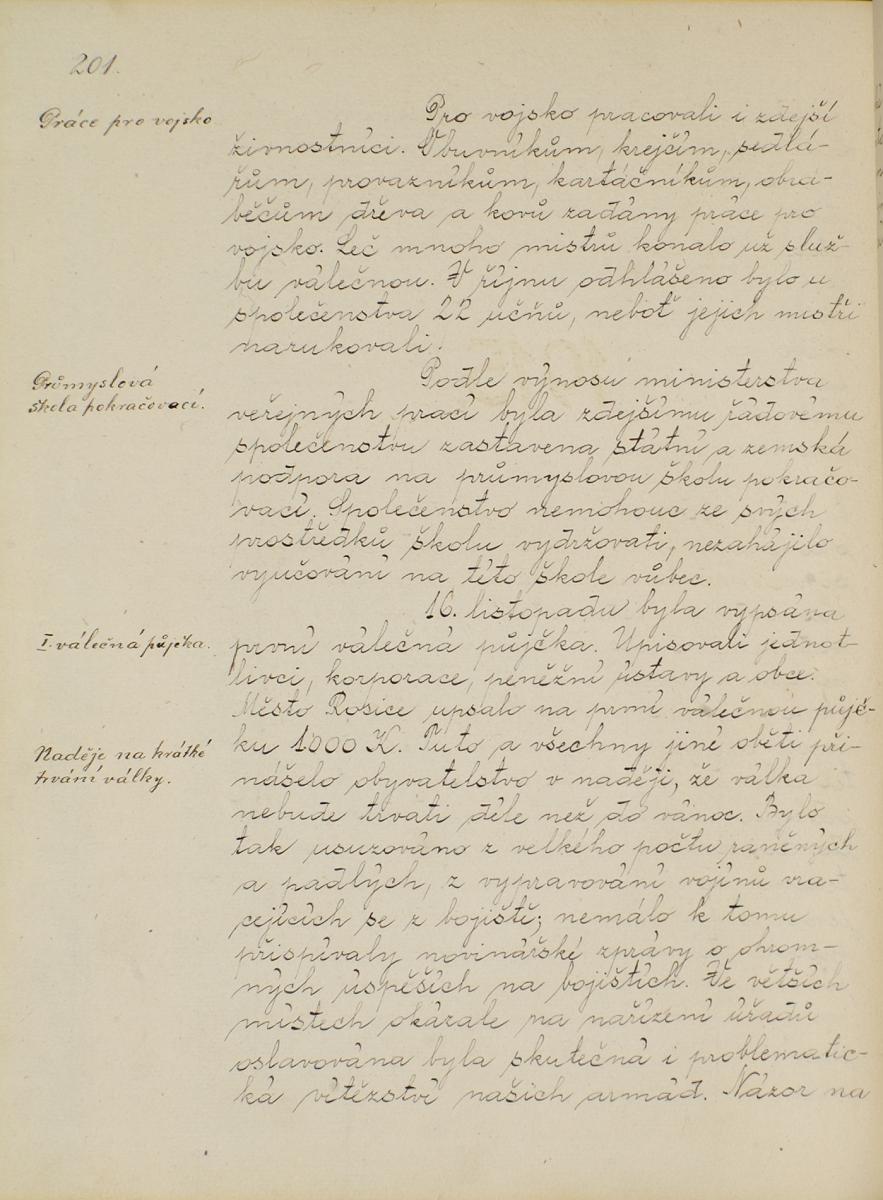 201.
Práce pro vojsko
Pro vojsko pracovali i zdejší
živnostníci. Obuvníkům, krejčím, sedlá-
řům, provazníkům, kartáčníkům, obra-
běčům dřeva a kovů zadány práce pro
vojsko. Leč mnoho mistrů konalo už služ-
bu válečnou. V říjnu odhlášeno bylo u
společenstva 22 učňů, neboť jejich mistři
narukovali.
Průmyslová
škola pokračovací.
Podle výnosu ministerstva
veřejných prací byla zdejšímu řádovému
společenstvu zastavena státní a zemská
podpora na průmyslovou školu pokračo-
vací. Společenstvo nemohouc ze svých
prostředků školu vydržovati, nezahájilo
vyučování na této škole vůbec.
16. listopadu byla vypsána
I. válečná půjčka.
první válečná půjčka. Upisovali jednot-
livci, korporace, peněžní ústavy a obce.
Město Rosice upsalo na první válečnou půjč-
ku 1000 K. Tuto a všechny jiné oběti při-
Naděje na krátké
trvání války.
nášelo obyvatelstvo v naději, že válka
nebude trvati déle než do vánoc. Bylo
tak usuzováno z velkého počtu raněných
a padlých, z vypravování vojínů vra-
cejících se z bojiště; nemálo k tomu
přispívaly novinářské zprávy o ohrom-
ných úspěších na bojištích. Ve větších
místech okázale na nařízení úřadů
oslavována byla skutečná i problematic-
ká vítězství našich armád. Názor na